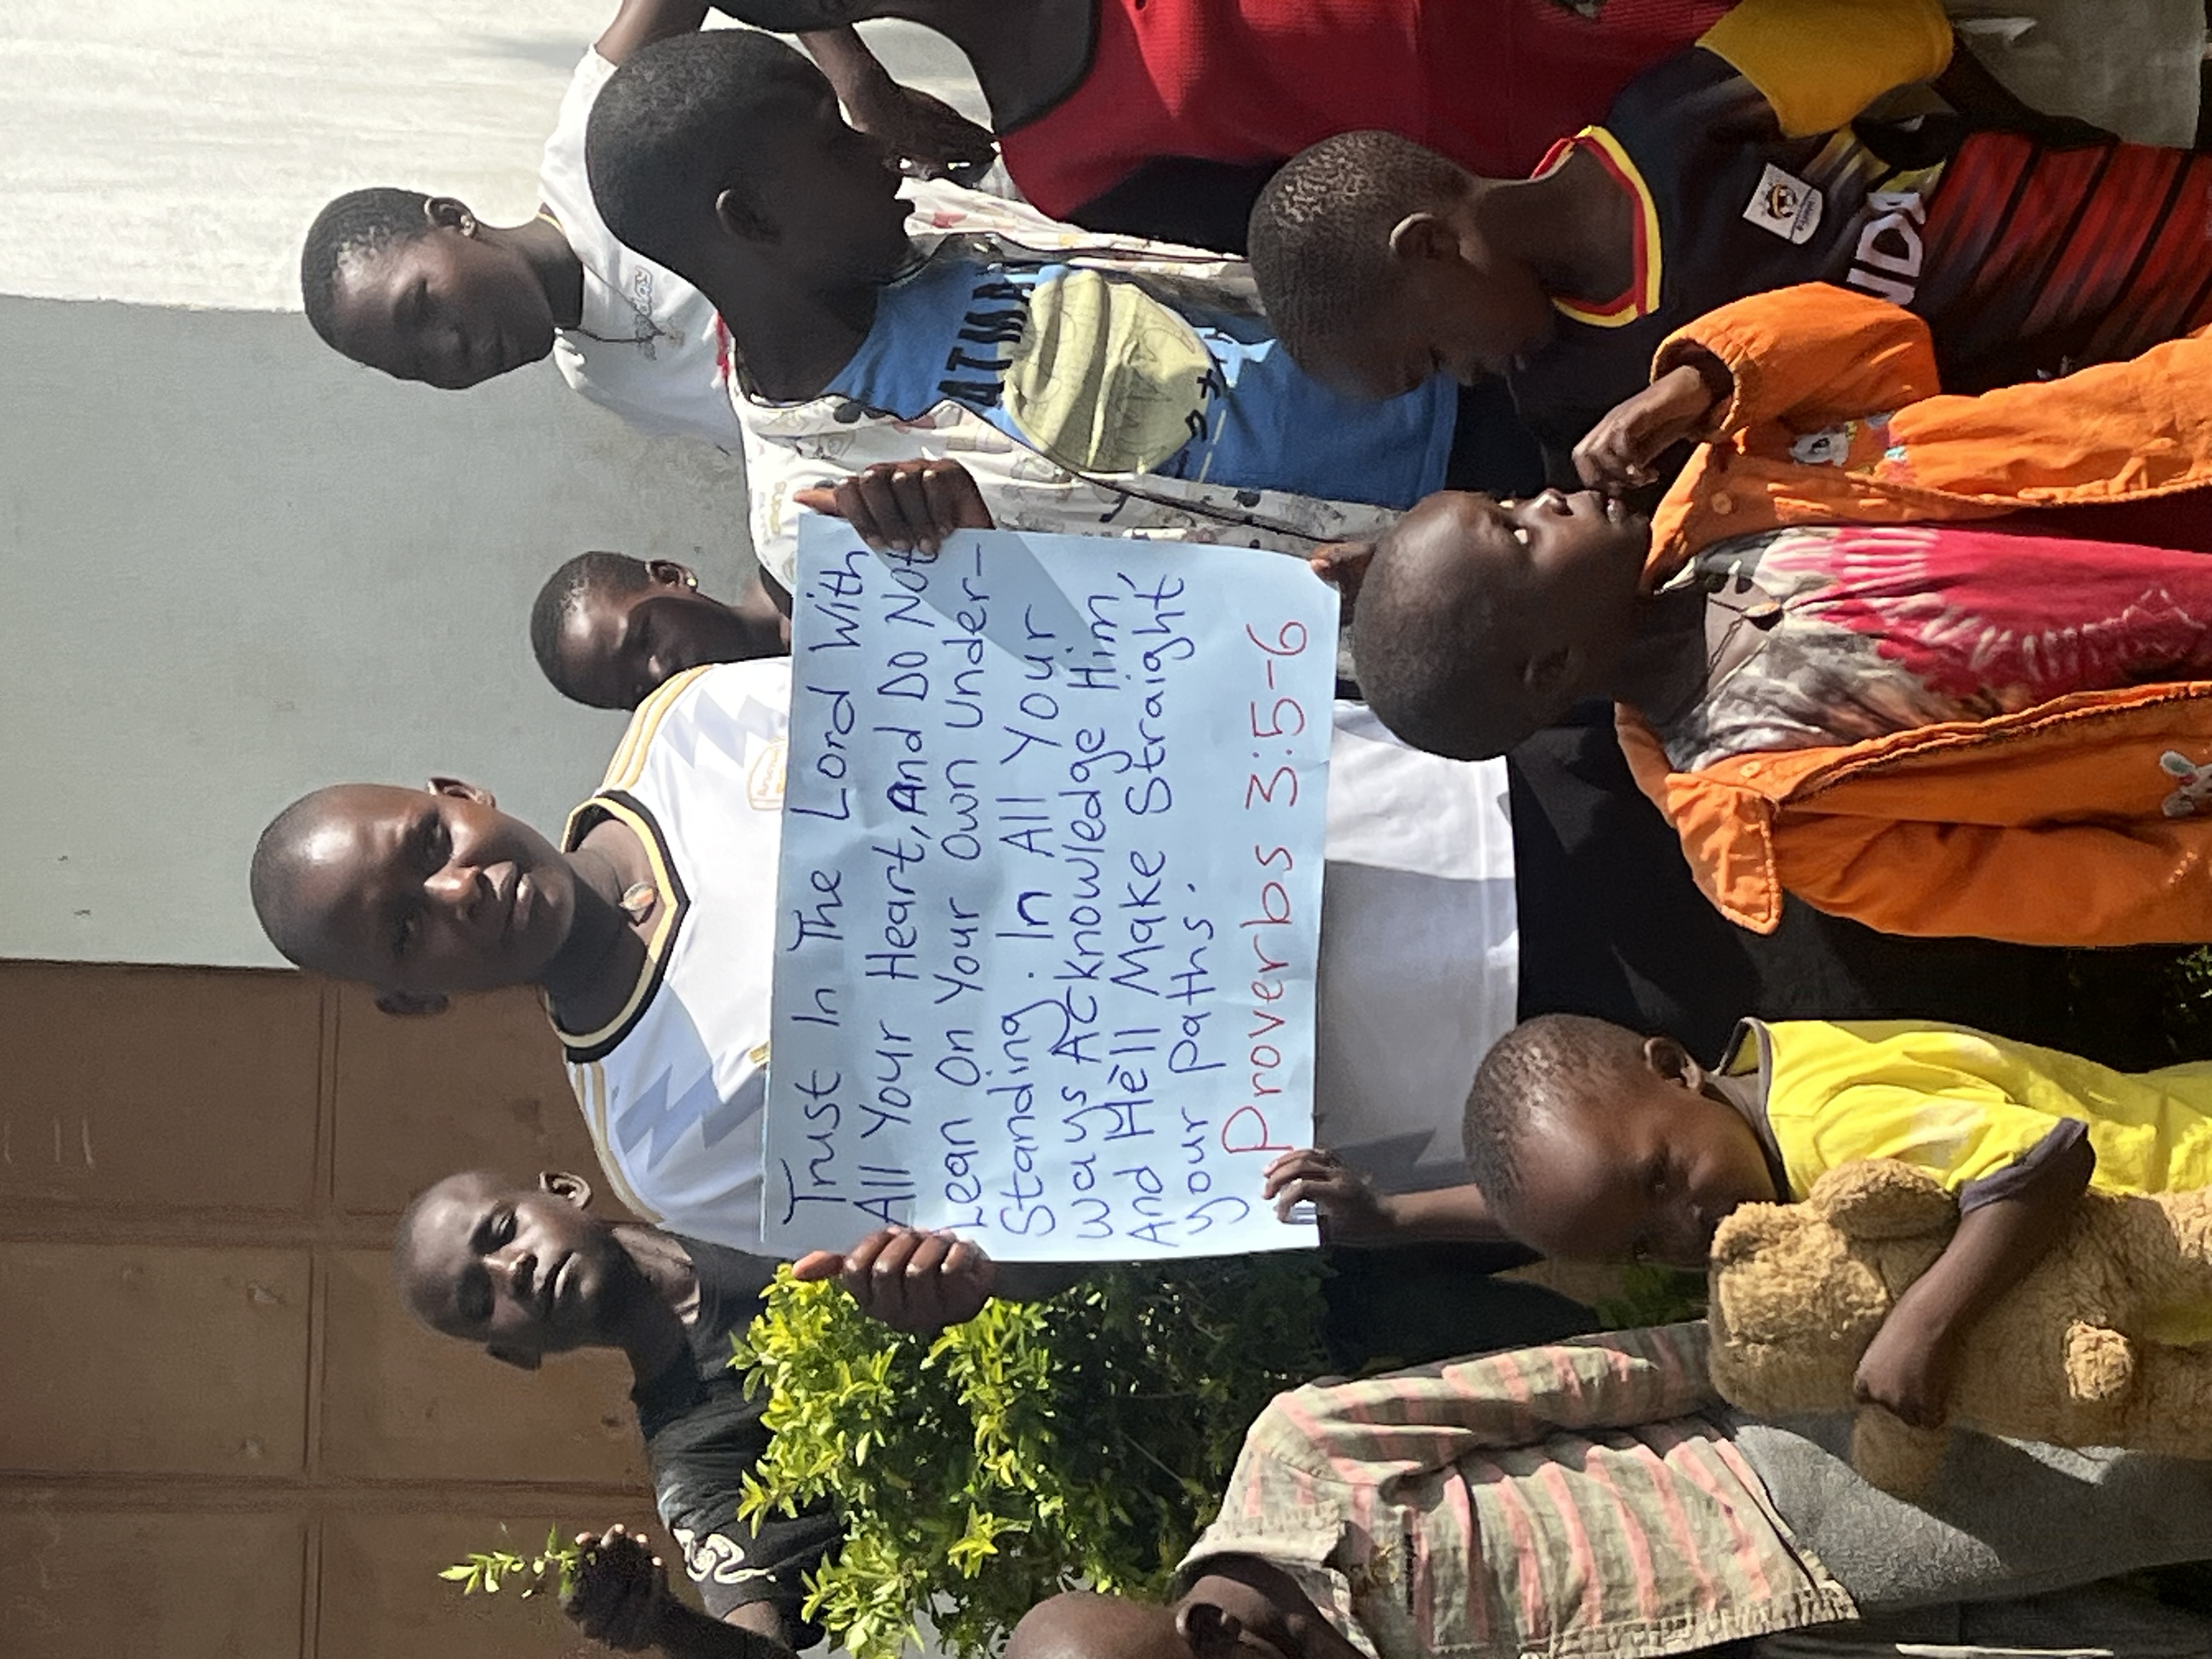 Trust In The Lord With
All Your Heart, And Do Not
Lean On Your Own Under-
Standing. In All Your
ways Acknowledge Him,
And He'll Make Straight
your paths.
Proverbs 3:5-6